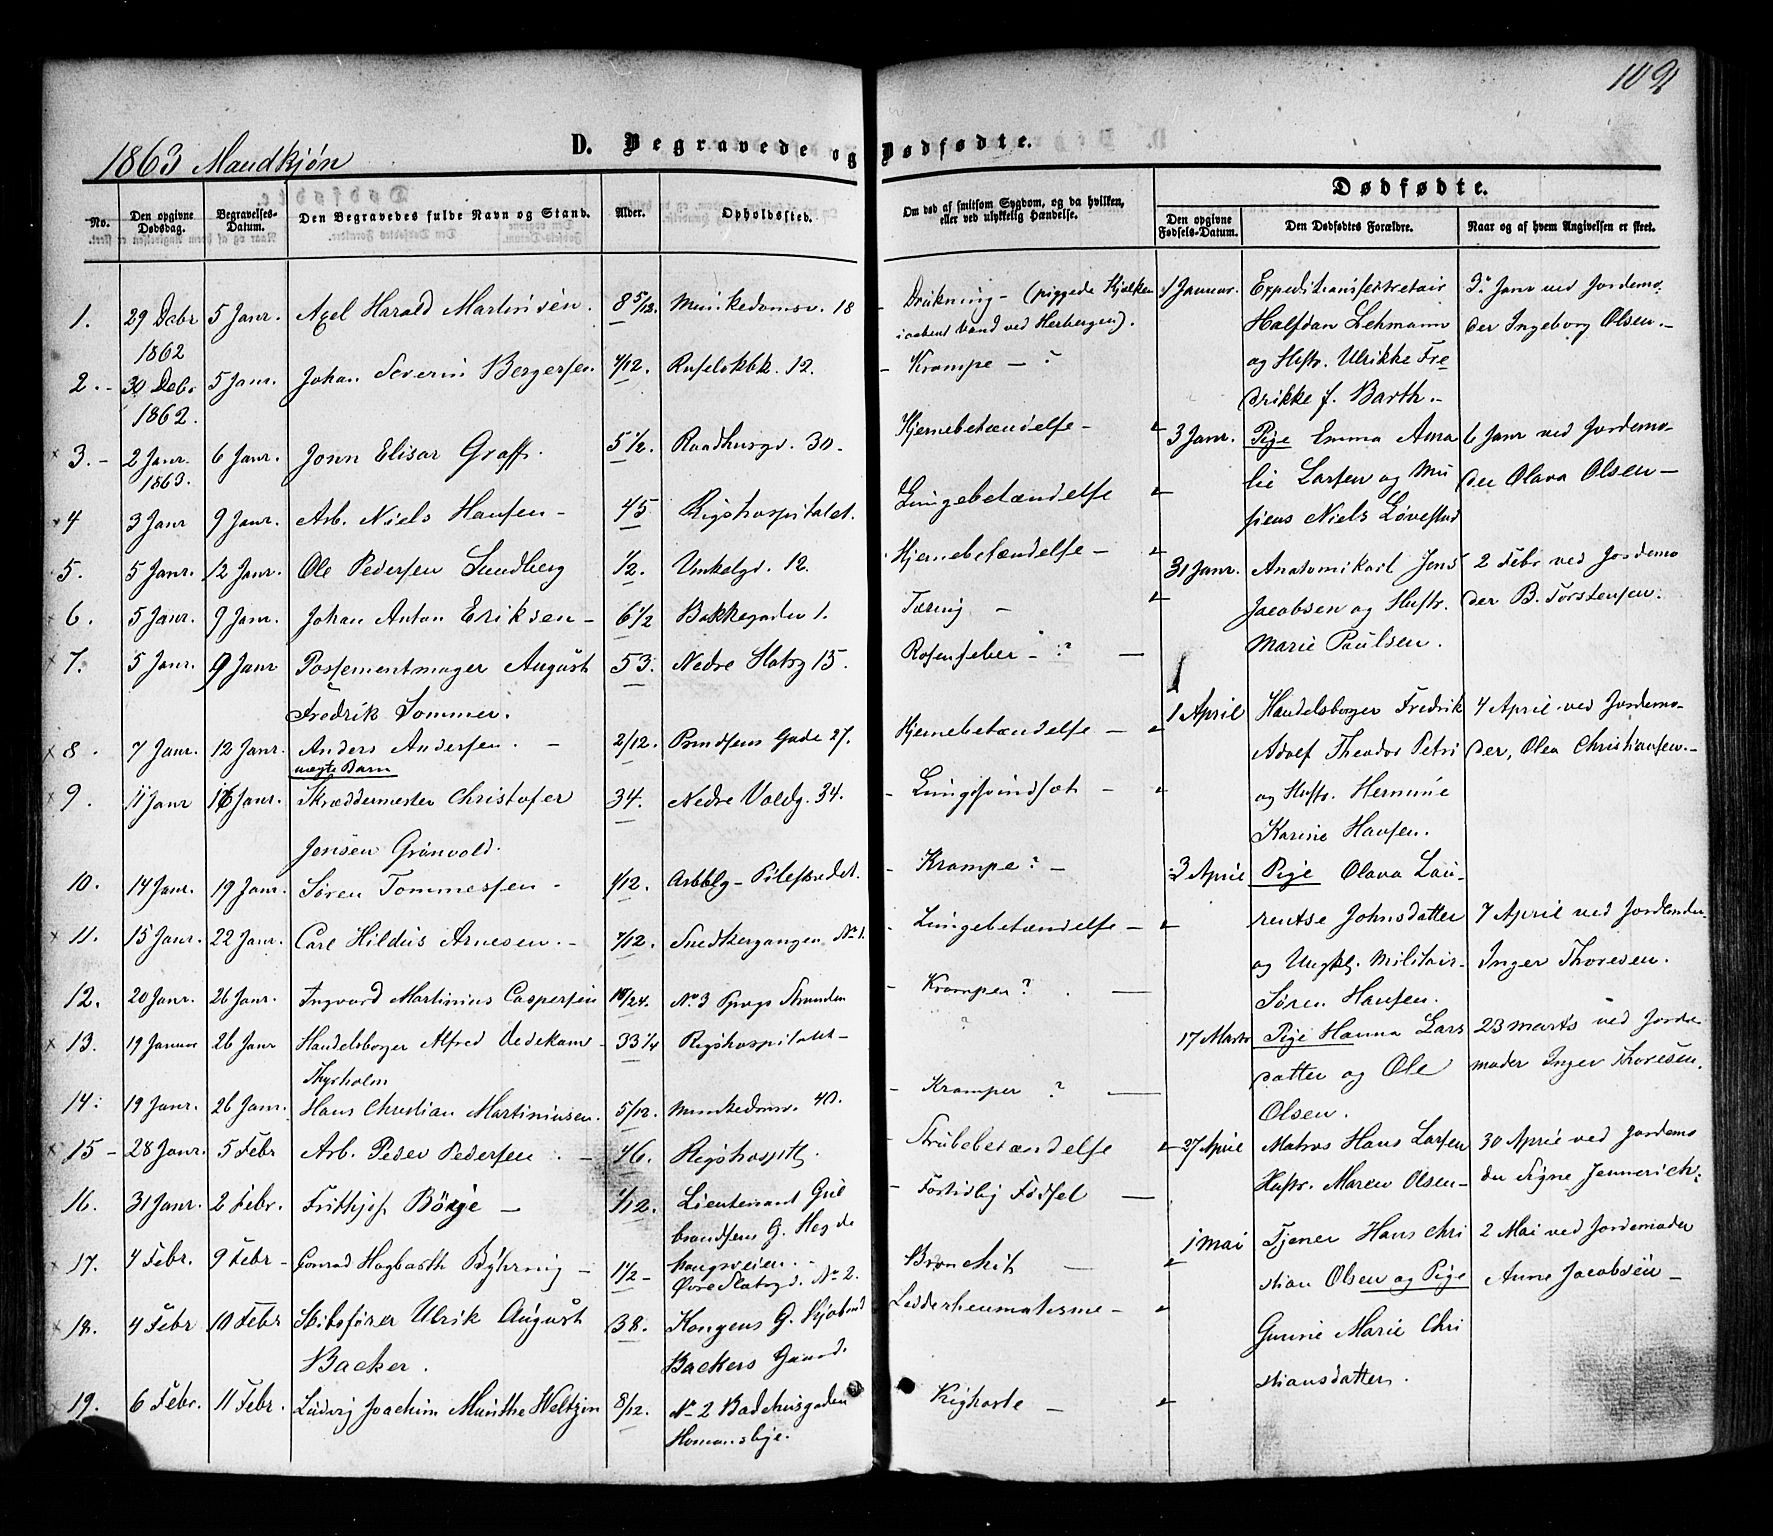 102
1863 Mandkjøn
D. Begravede og Dødfødte.
Dødfødte.
No.
Den opgivne Dødsdag.
Begravelses-Datum.
Den Begravedes fulde Navn og Stand.
Alder.
Opholdssted.
Om død af smitsom Sygdom, og da hvilken, eller ved ulykkelig Hændelse.
Den opgivne Fødsels-Datum.
Den Dødfødtes Forældre.
Naar og af hvem Angivelsen er skeet.
1. 29 Debr 1862 5 Janr. Axel Harald Martinsen. 8 5/12. Munkedamsv. 18 Drukning - (piggede Kjælken
i aabent Vand ved Herbergen).
2. - 30 Debr 1862. 5 Janr. Johan Severin Bergersen 4/12. Ruseløkbk. 12. Krampe - ?
3. - 2 Janr. 1863. 6 Janr. Jonn Elisar Graff. 5 1/2. Raadhusgd. 30. Hjernebetændelse -
4 3 Janr 9 Janr. Arb. Niels Hansen - 45 Rigshospitalet. Lungebetændelse
5. 5 Janr. 12 Janr. Ole Pedersen Sundberg 1/2. Vinkelgd. 12. Hjernebetændelse -
6. 5 Janr. 9 Janr. Johan Anton Eriksen - 6 1/2 Bakkegaden 1. Tæring -
7. 5 Janr. 9 Janr Possementmager August 53. Nedre Slotsg 15. Rosenfeber - ? -
Fredrik Sommer.
8. 7 Janr. 12 Janr. Anders Andersen. - 2/12. Prindsens Gade 27. Hjernebetændelse -
uægte Barn
9. 11 Janr 16 Janr. Skræddermester Christofer 34. Nedre Voldg. 34. Lungesvindsot -
Jensen Grønvold.
10. 14 Janr. 19 Janr. Søren Tommessen - 1/12. Arbblg - Pilestrædet. Krampe? -
11. 15 Janr. 22 Janr. Carl Hildus Arnesen. - 7/12. Snedkergangen No 1. Lungebetændelse -
12. 20 Janr. 26 Janr. Ingvard Martinius Caspersen No 3 Pipvgs Stranden Kramper? -
13. 19 Januar 26 Janr Handelsborger Alfred Vedekam 33 1/4 Rigshospitalet - ?
Thyrholm
14. 19 Janr. 26 Janr. Hans Christian Martiniusen. 5/12. Munkedamsv. 40. Kramper ? -
15 - 28 Janr. 5 Febr Arb. Peder Pedersen. - 46. Rigshospitl. Strubebetændelse
16. 31 Janr. 2 Febr. Frithjof Börje - 1/12. Lieutenant Gul
brandsens G. Hegde
haugsveien. - Fortidlig Fødsel -
17. 4 Febr. 9 Febr - Conrad Hagbarth Bÿhring - 1 1/2 - Øvre Slotsgd. No 2. Bronchit -
18. 4 Febr 10 Febr Skibsfører Ulrik August 38. Kongens G. Skjøtsmd Ledderheumatisme -
Backer. Backers Gaard.
19. 6 Febr. 11 Febr. Ludvig Joachim Munthe Weltzin 8/12. No 2 Badehusgaden Kighoste -
Homansbye.
1 Januar. Expeditionssekretair 3. Janr ved Jordemo-
Halfdan Lehmann der Ingeborg Olsen. -
og Hustr. Ulrikke Fre
drikke f. Barth. -
3 Janr. Pige Emma Ama 6 Janr ved Jordemo-
lie Larsen og Mu der Olava Olsen -
sicus Niels Løvestad
31 Janr. Anatomikarl Jens 2 Febr ved Jordemo
Jacobsen og Hustr. der B. Torstensen.
Marie Paulsen.
1 April Handelsborger Fredrik 4 April ved Jordemo-
Adolf Theodor Petri der, Olea Christiansen. -
og Hustr. Hermine
Karine Hansen.
3 April Pige Olava Lau-
rentse Johnsdatter 7 April ved Jordemder
og Ungkl. Militair- Inger Thoresen.
Søren Hansen.
17 Marts Pige Hanna Lars 23 marts ved Jorde
datter og Ole moder Inger Thoresen.
Olsen.
27 April Matros Hans Larsen 30 April ved Jordemo
Hustr. Maren Olsen - der Signe Jennerich.
1 Mai Tjener Hans Chri 2 Mai ved Jordemoder
stian Olsen og Pige Anne Jacobsen -
Gunnie Marie Chri
stiansdatter.